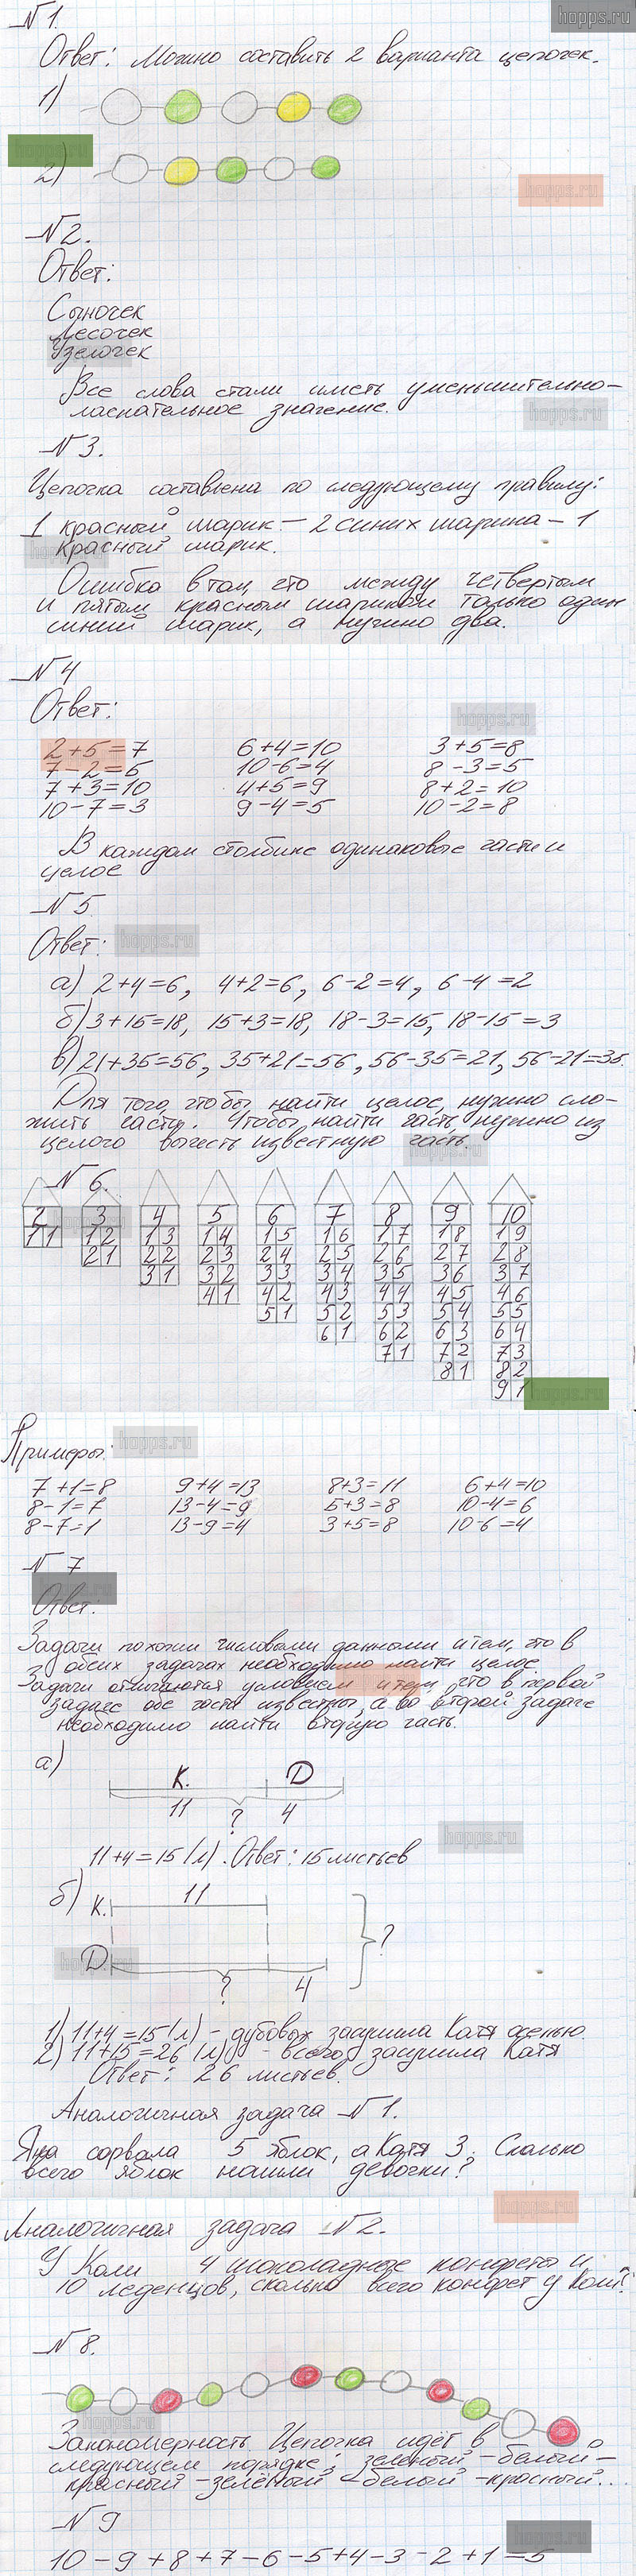 hopps.ru
№1.
Ответ: Можно составить 2 варианта цепочек.
1)
2)
hopps.ru
№2.
Ответ:
Сыночек
Лесочек
Узелочек
Все слова стали иметь уменьшительно-
ласкательное значение.
hopps.ru
№3.
Цепочка составлена по следующему правилу:
1 красный шарик – 2 синих шарика – 1
красный шарик.
Ошибка в том, что между четвертым
и пятым красным шариком только один
синий шарик, а нужно два.
№4
Ответ:
hopps.ru
2+5=7 6+4=10 3+5=8
7-2=5 10-6=4 8-3=5
7+3=10 4+5=9 8+2=10
10-7=3 9-4=5 10-2=8
В каждом столбике одинаковые части и
целое
№5
Ответ: hopps.ru
а) 2+4=6, 4+2=6, 6-2=4, 6-4=2
б) 3+15=18, 15+3=18, 18-3=15, 18-15=3
в) 21+35=56, 35+21=56, 56-35=21, 56-21=35.
Для того, чтобы найти целое, нужно сло-
жить части. Чтобы найти часть, нужно из
целого вычесть известную часть.
hopps.ru
№6.
2 3 4 5 6 7 8 9 10
11 12 13 14 15 16 17 18 19
21 22 23 24 25 26 27 28
31 32 33 34 35 36 37
41 42 43 44 45 46
51 52 53 54 55
61 62 63 64
71 72 73
81 82
91
hopps.ru
Примеры: hopps.ru
7+1=8 9+4=13 8+3=11 6+4=10
8-1=7 13-4=9 5+3=8 10-4=6
8-7=1 13-9=4 3+5=8 10-6=4
№7
Ответ:
Задачи похожи числовыми данными и тем, что в
обеих задачах необходимо найти целое.
Задачи отличаются условием и тем, что в первой
задаче обе части известны, а во второй задаче
необходимо найти вторую часть.
а)
К. D
11 ? 4
hopps.ru
11+4=15 (л). Ответ: 15 листьев
б) К. 11
D ? 4 ?
hopps.ru
1) 11+4=15 (л) – дубовых засушила Катя осенью.
2) 11+15=26 (л) – всего засушила Катя
Ответ: 26 листьев.
Аналогичная задача №1.
Яна сорвала 5 яблок, а Катя 3. Сколько
всего яблок нашли девочки?
hopps.ru
Аналогичная задача №2.
У Коли 4 шоколадные конфеты и
10 леденцов, сколько всего конфет у Коли?
№8.
hopps.ru
Закономерность. Цепочка идёт в
следующем порядке: зеленый – белый –
красный – зелёный – белый – красный...
№9
10-9+8+7-6-5+4-3-2+1=5